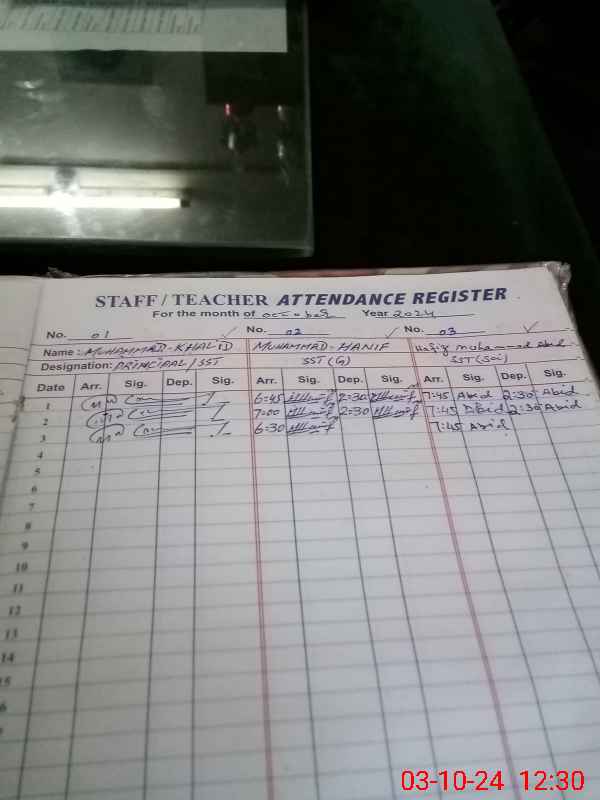 STAFF / TEACHER ATTENDANCE REGISTER
For the month of october Year 2024
No. 01 No. 02 No. 03
Name: MUHAMMAD-KHALID MUHAMMAD-HANIF Hafiz muhammad Abid
Designation: PRINCIPAL/SST SST(G) SST(Sci)
Date Arr. Sig. Dep. Sig. Arr. Sig. Dep. Sig. Arr. Sig. Dep. Sig.
1 6:45 2:30 7:45 Abid 2:30 Abid
2 7:00 2:30 7:45 Abid 2:30 Abid
3 6:30 7:45 Abid
4
5
6
7
8
9
10
11
12
13
14
15
03-10-24 12:30